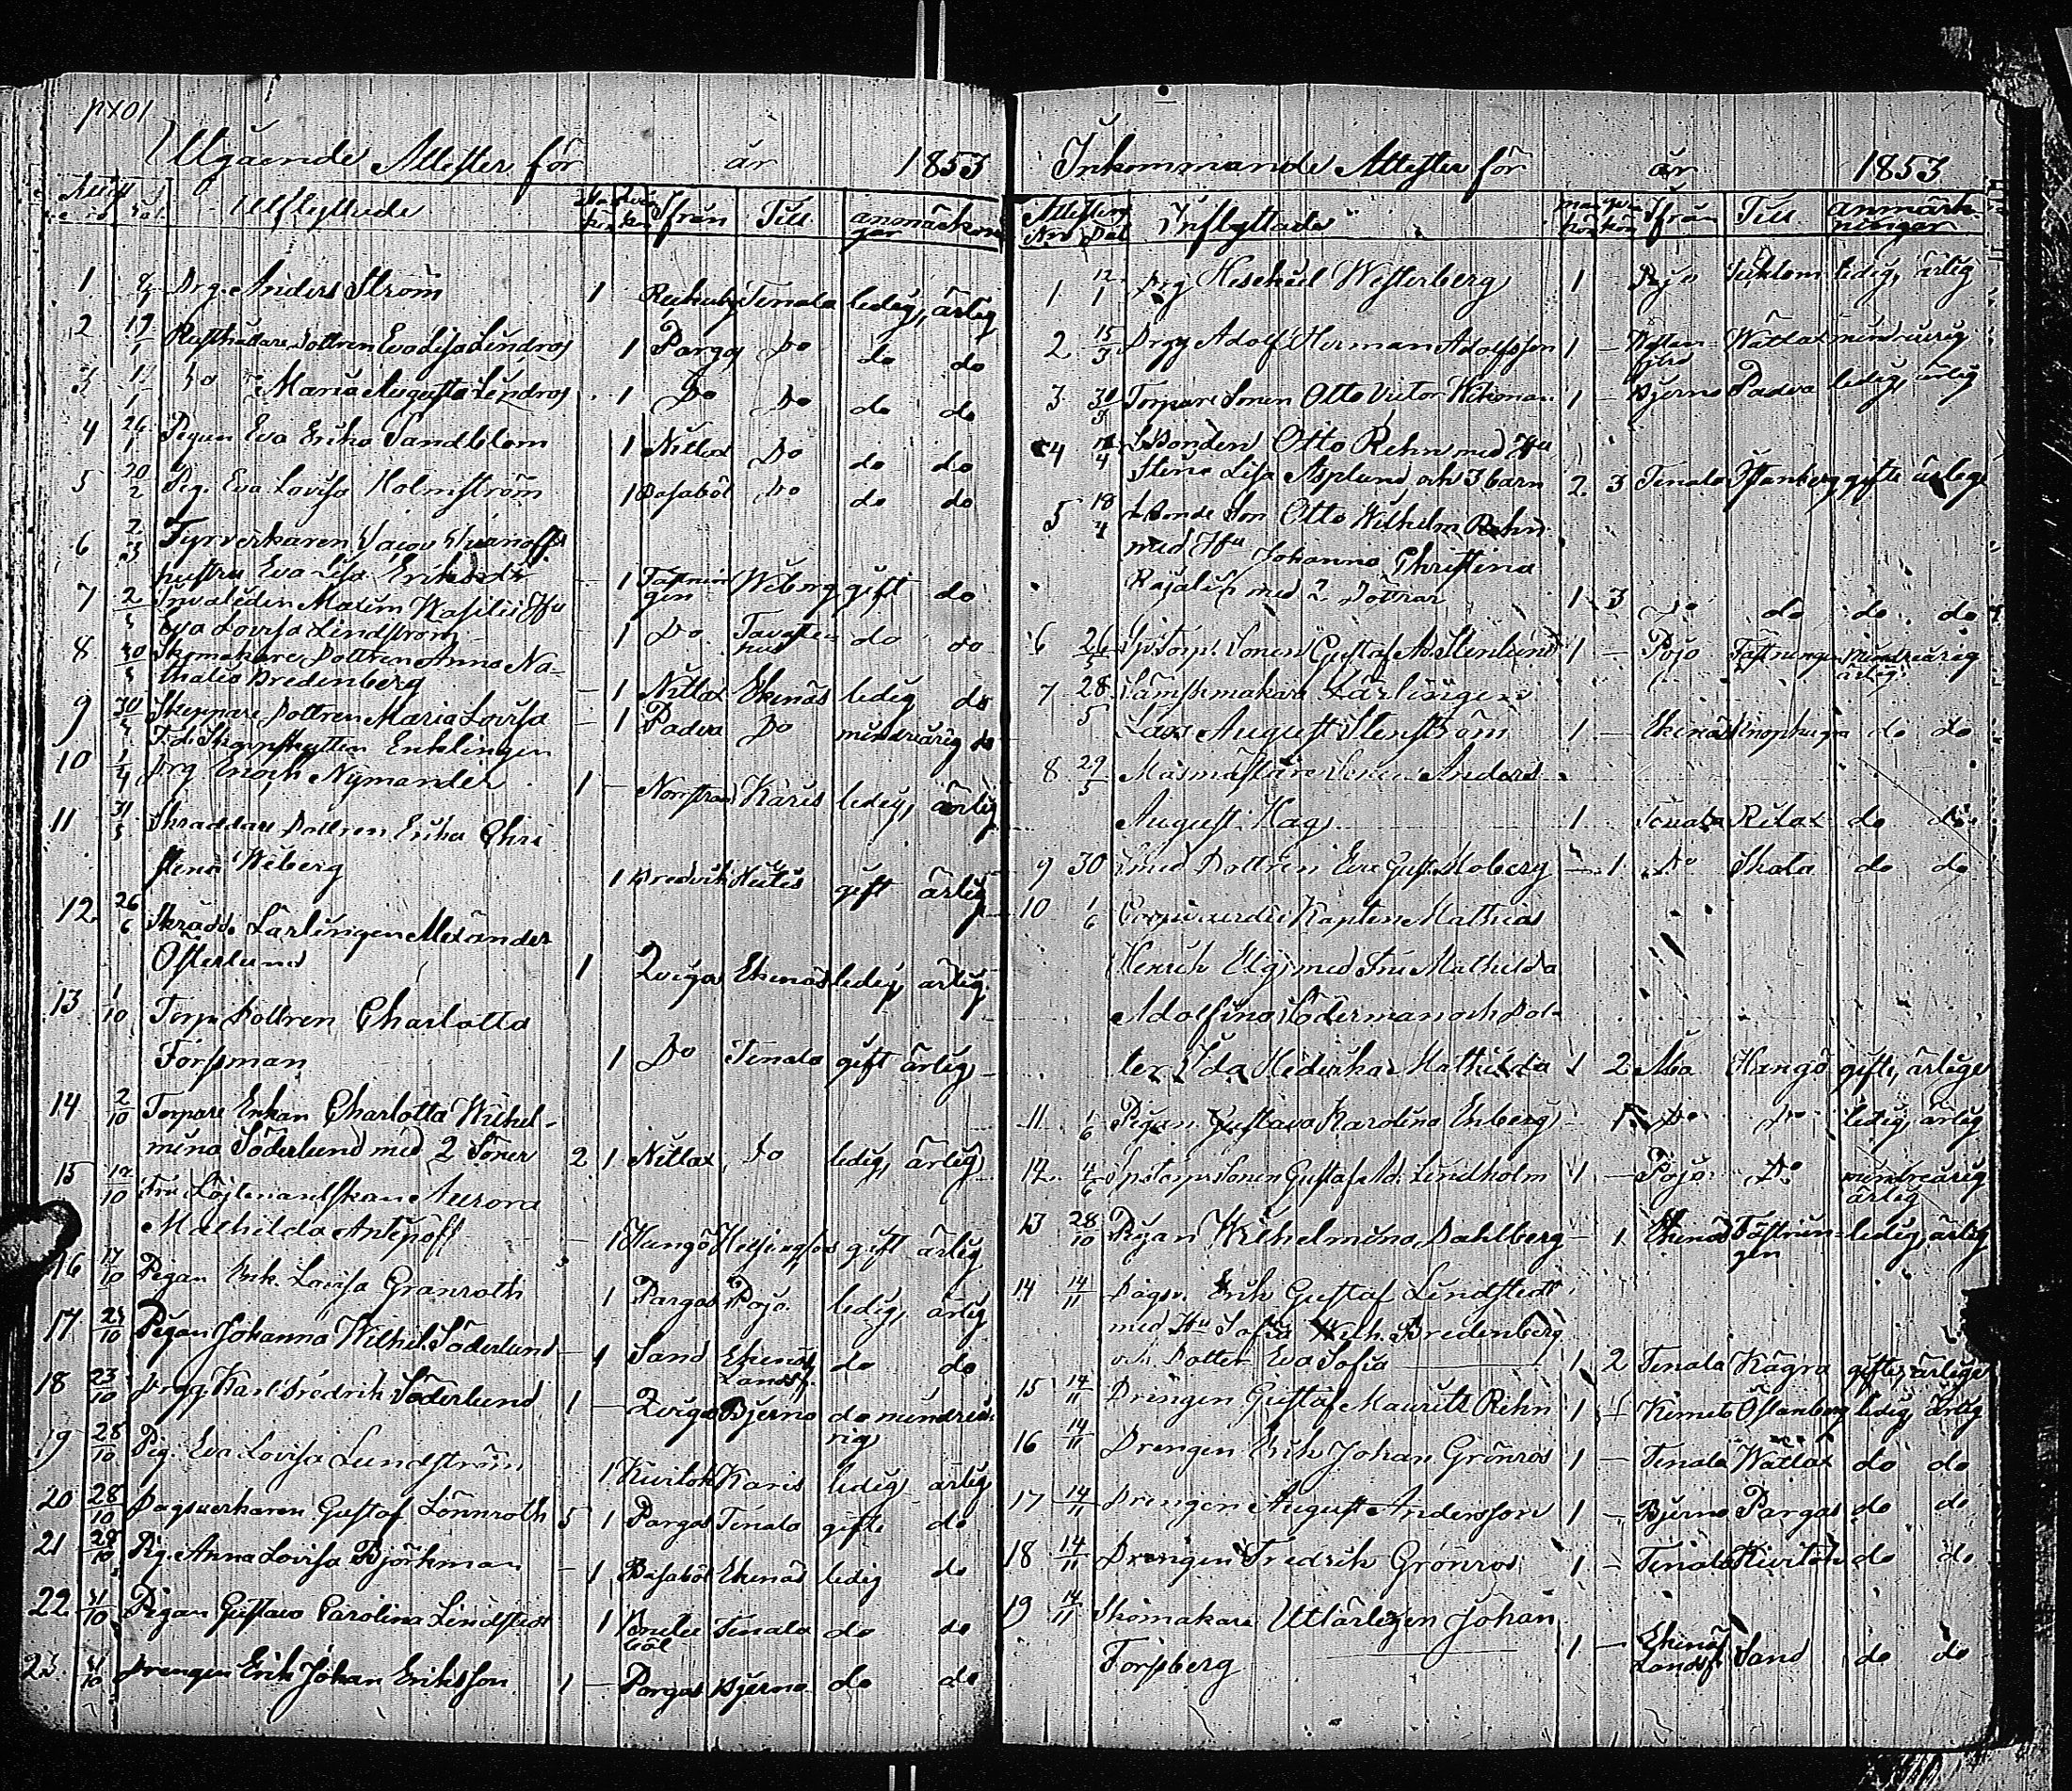 Utgående Attester för år 1853
Attest
Utflyttade Ifrån Till anmärkningar
1 Drg. Anders Ström 1 Tenala ledig, ärlig
2 19/1 Rusthållare Dottren Eva Lisa Lindros 1 Pargas Do do do
3 Do Maria Augusta Lindros 1 Do Do do do
4 26/1 Pigan Eva Erika Sandblom 1 Nitlax Do do do
5 20/2 Pig. Eva Lovisa Holmström 1 Basaböl Do do do
6 2/3 Fyrverkaren Jacov Ivanoffs
hustru Eva Lisa Eriksdtr – 1 Fästnin Wiborg gift do
gen
7 Invaliden Maxim Wasilii Hu
Eva Lovisa Lindström – 1 Do Tavaste do do
hus
8 Skomakare Dottren Anna Na-
thalia Bredenberg – 1 Nitlax Ekenäs ledig do
9 Skeppare Dottren Maria Lovisa – 1 Padva Do mindreårig do
Enklingen
10 1/4 Drg Enoch Nymander 1 – Norrstrand Karis ledig, ärlig
11 Skräddare Dottren Erika Chri
stena Wiberg 1 Bredvik gift ärlig
12 26/6 Skrädd. Lärlingen Alexander
Österlund 1 Qviga Ekenäs ledig, ärlig
13 1/10 Torp. Dottren Charlotta
Forsman 1 Do Tenala gift ärlig
14 2/10 Torpare Enkan Charlotta Wilhel-
mina Söderlund med 2 Söner 2 1 Nitlax Do ledig, ärlig
15 Fru Löjtnantskan Aurora
Mathilda Antipoff – 1 Hangö Helsingfors gift ärlig
16 17/10 Pigan Erik. Lovisa Granroth 1 Pargas Pojo ledig, ärlig
17 Pigan Johanna Wilhel. Söderlund – 1 Sand Ekenäs do do
Landsf.
18 23/10 Drgg. Karl Fredrik Söderlund 1 – Qviga Bjerno do mindreå
rig
19 28/10 Pig. Eva Lovisa Lundström 1 Kivitok Karis ledig ärlig
20 28/10 Dagsverkaren Gustaf Lönnroth 5 1 Pargas Tenala gifte do
21 28/10 Pig. Anna Lovisa Björkman – 1 Basaböl Ekenäs ledig do
22 31/10 Pigan Gustava Carolina Lindstedt 1 Tenala do do
böl
23 31/10 Drengen Erik Johan Eriksson 1 – Pargas Bjerno do do
Inkommande Attester för år 1853
Attestens mankön qvinkön Ifrån Till anmärk-
Nro Dat Inflyttade ningar
1 12/1 Drg Hesekiel Westerberg 1 – Pojo ledig, ärlig
2 15/3 Drgg Adolf Herman Adolfsson 1 – Wättlax mindreårig
3 30/3 Torpare Sonen Otto Victor Wikman 1 – Bjerno Padva ledig, ärlig
4 Bonden Otto Rehn med Hu
Stina Lisa Asplund och 3 barn 2 3 Tenala Östanberg gifte ärlige
5 18/4 Bonde Son Otto Wilhelm Rehn
med Hu Johanna Christina
med 2 Döttrar 1 3 Do do do do
6 26/5 Sp. Torp. Sonen Gustaf Ad. Stenlund 1 – Pojo Fästningen mindreårig
ärlig
7 28/5 Sämskmakare Lärlingen
Lars August Stenström 1 – Ekenäs do do
8 29/5 Masmästare Sonen Anders
August Hag 1 Tenala Rilax do do
9 30 Smed Dottren Eva Gust. Moberg – 1 Do Skata do do
10 1/6 Kapten Mathias
Henrik Elg med Fru Mathilda
Adolfina Södermanoch Dot-
ter Ida Hedvika Mathilda 1 2 Åbo Hangö gifte, ärlige
11 1/6 Pigan Gustava Karolina Ekberg – 1 Do Do ledig, ärlig
12 4/6 Sp. torp. Sonen Gustaf Ad. Lindholm 1 – Pojo Do mindreårig
ärlig
13 28/10 Pigan Wilhelmina Dahlberg – 1 Ekenäs Fästnin- ledig, ärlig
gen
14 14/11 Dagsv. Erik Gustaf Lindstedt
med Hu Sofia Welh. Bredenberg
och Dotter Eva Sofia 1 2 Tenala Kägra gifte, ärlige
15 14/11 Drengen Gustaf Mauritz Rehn 1 – Kimito Östanberg ledig, ärlig
16 14/11 Drengen Erik Johan Grönros 1 – Tenala Wätlax do do
17 14/11 Drengen August Andersson 1 – Bjerno Pargas do do
18 14/11 Drengen Fredrik Grönros 1 – Tenala Kivitok do do
19 14/11 Skomakare Utlärlegen Johan
Forsberg 1 – Ekenäs Sand do do
Landsf.